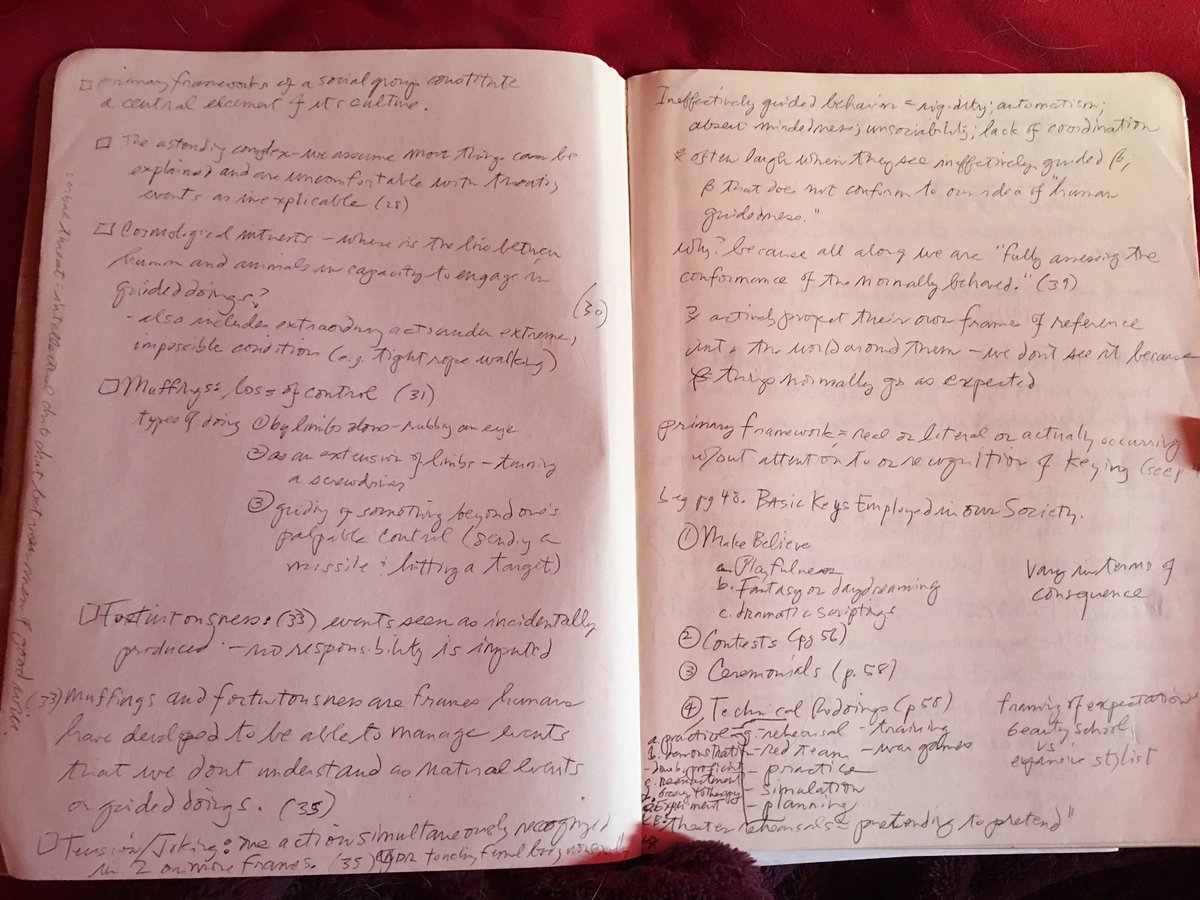 primary frameworks of a social group constitute
a central element of its culture.
The astonding complex - we assume most things can be
explained and are uncomfortable with
events as inexplicable (28)
Cosmological interests - where is the line between
human and animals in capacity to engage in
guided doings?
(30)
- also includes extraordinary acts under extreme,
impossible condition (e.g. tight rope walking)
Muffings: loss of control (31)
types of doing ① by limbs alone - rubbing an eye
② as an extension of limbs - turning
a screwdriver
③ guiding of something beyond one's
palpable control (sending a
missile + hitting a target)
Fortuitousness: (33) events seen as incidentally
produced - no responsibility is imputed
(33) Muffings and fortuitousness are frames humans
have developed to be able to manage events
that we dont understand as natural events
or guided doings. (35)
Tension/Joking: one action simultaneously recognized
in 2 or more frames. (35)
Ineffectively guided behavior = rigidity; automatism;
absent mindedness; unsociability; lack of coordination
often laugh when they see ineffectively guided β,
β that does not conform to our idea of "human
guidedness."
why? because all along we are "fully assessing the
conformance of the normally behaved." (39)
actively project their own frame of reference
into the world around them - we don't see it because
things normally go as expected
primary framework = real or literal or actually occurring
w/out attention to or recognition of keying (see p
beg pg 48. Basic Keys Employed in our Society.
① Make Believe
a. Playfulness
b. Fantasy or daydreaming
c. dramatic scriptings
vary in terms of
consequence
② Contests (pg 56)
③ Ceremonials (p. 58)
④ Technical Redoings (p 58)
framing of expectation
beauty school
vs
expensive stylist
a. practice - e.g. rehearsal - training
b. demonstration - red team - war games
- done by proficient - practice
- simulation
experiment - planning
theater rehearsals = pretending to pretend"